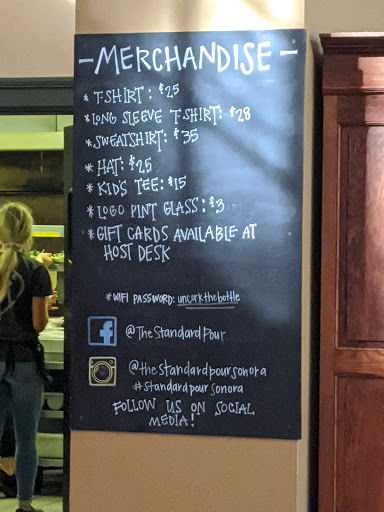 -MERCHANDISE-
* T-SHIRT: $25
* LONG SLEEVE T-SHIRT: $28
* SWEATSHIRT: $35
* HAT: $25
* KID'S TEE: $15
* LOGO PINT GLASS: $3
* GIFT CARDS AVAILABLE AT
HOST DESK
* WIFI PASSWORD: uncorkthebottle
f @TheStandardPour
@thestandardpoursonora
#standardpoursonora
FOLLOW US ON SOCIAL
MEDIA!